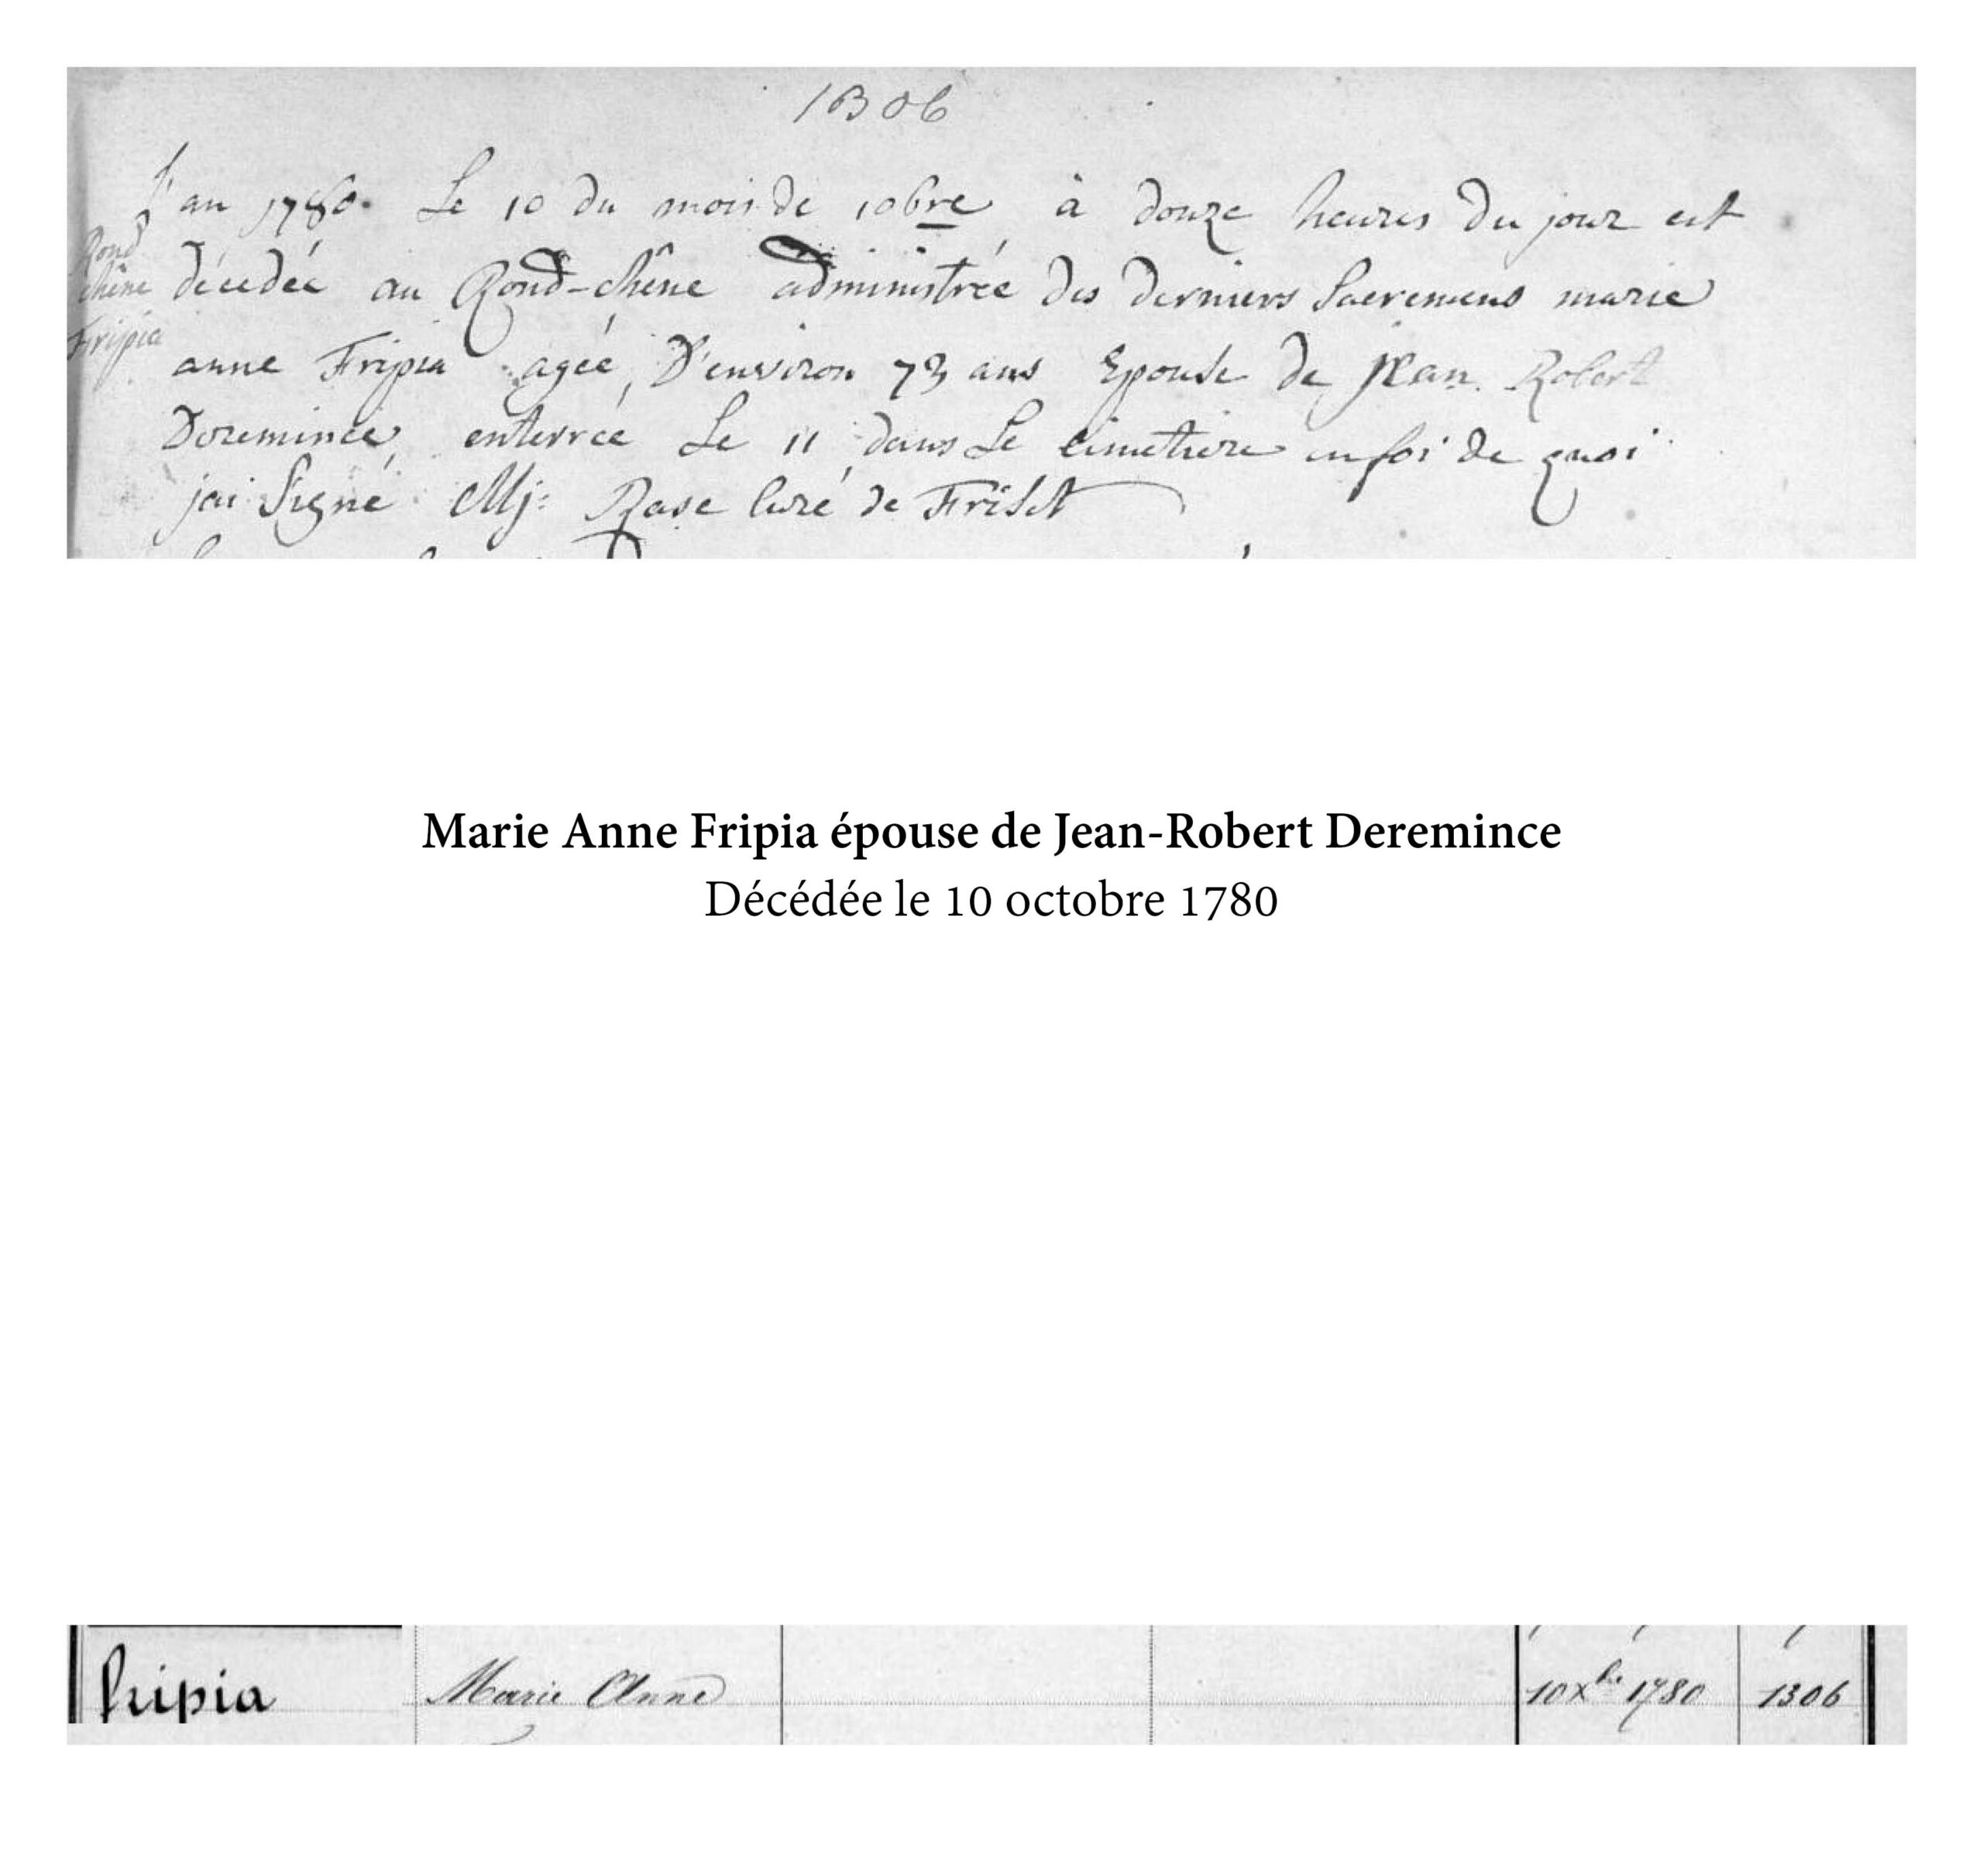 1306
L'an 1780. Le 10 du mois de 10bre à douze heures du jour est
Rond
chêne
décedée au Rond-chêne administrée des derniers Sacremens marie
Fripia
anne Fripia agée D'environ 73 ans Epouse de jean Robert
Doremince, enterrée Le 11 dans Le cimetiere en foi de quoi
jai Signé Mj: Rase Curé de Friset
Marie Anne Fripia épouse de Jean-Robert Deremince
Décédée le 10 octobre 1780
Fripia Marie Anne 10 Xbre 1780 1306